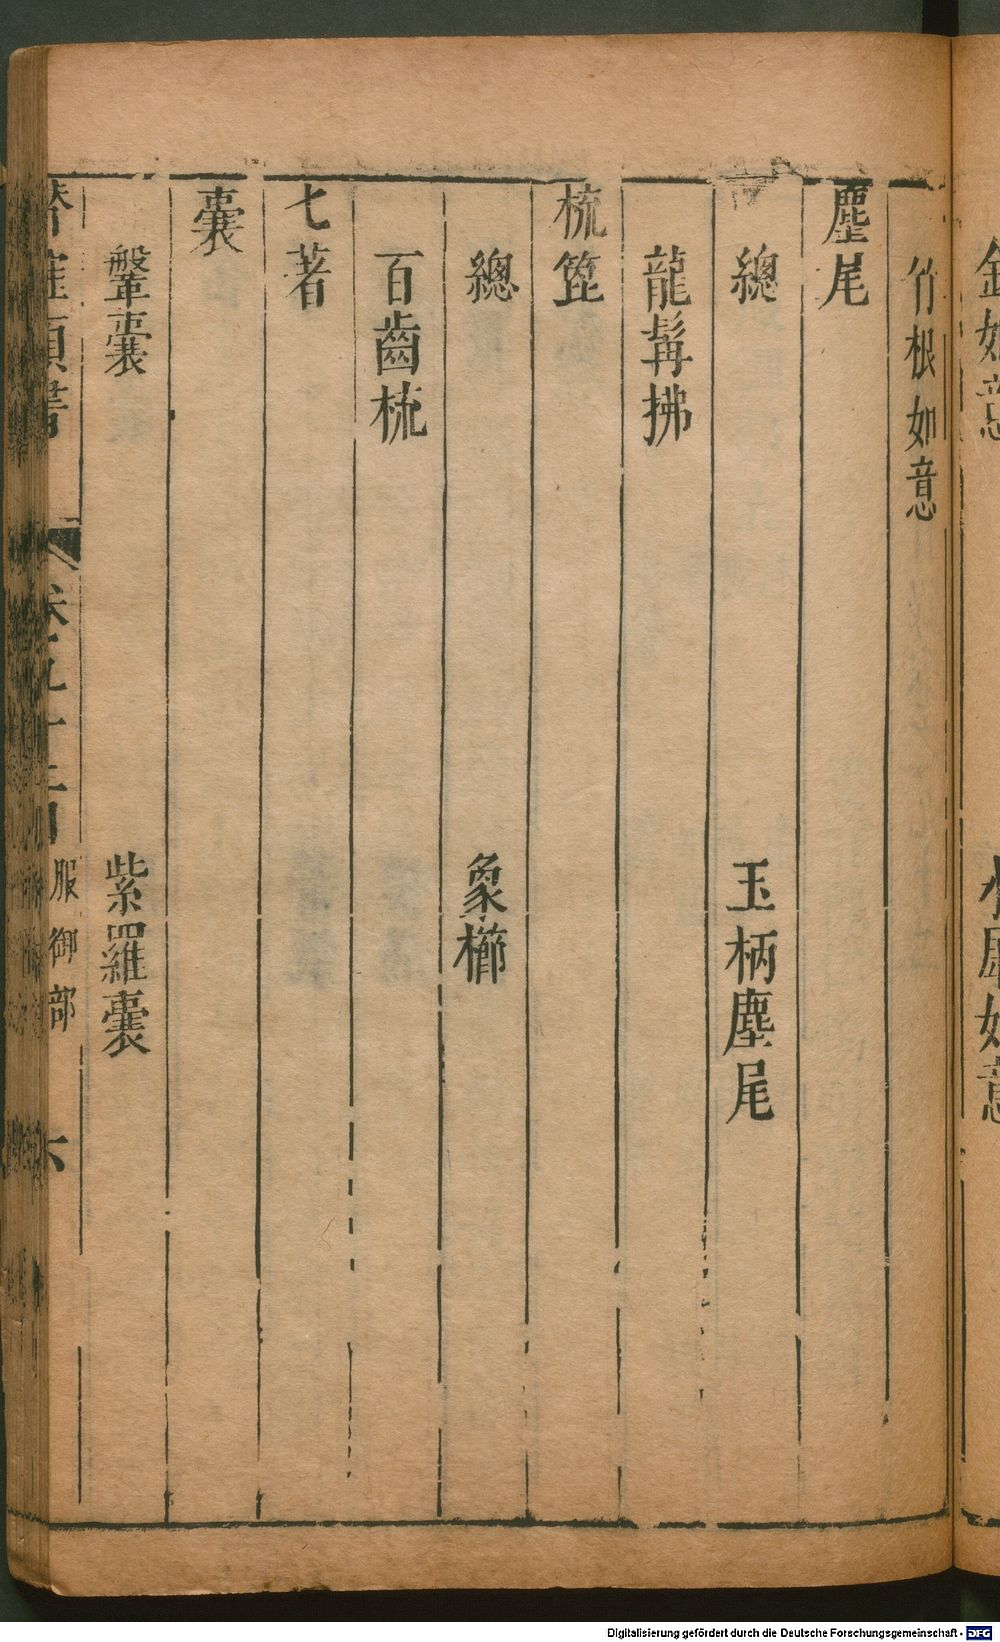 竹根如意
麈尾
總 玉柄麈尾
龍髯拂
梳箆
總 象櫛
百齒梳
七著
囊
鞶囊 紫羅囊
服御部
六
Digitalisierung gefördert durch die Deutsche Forschungsgemeinschaft - DFG